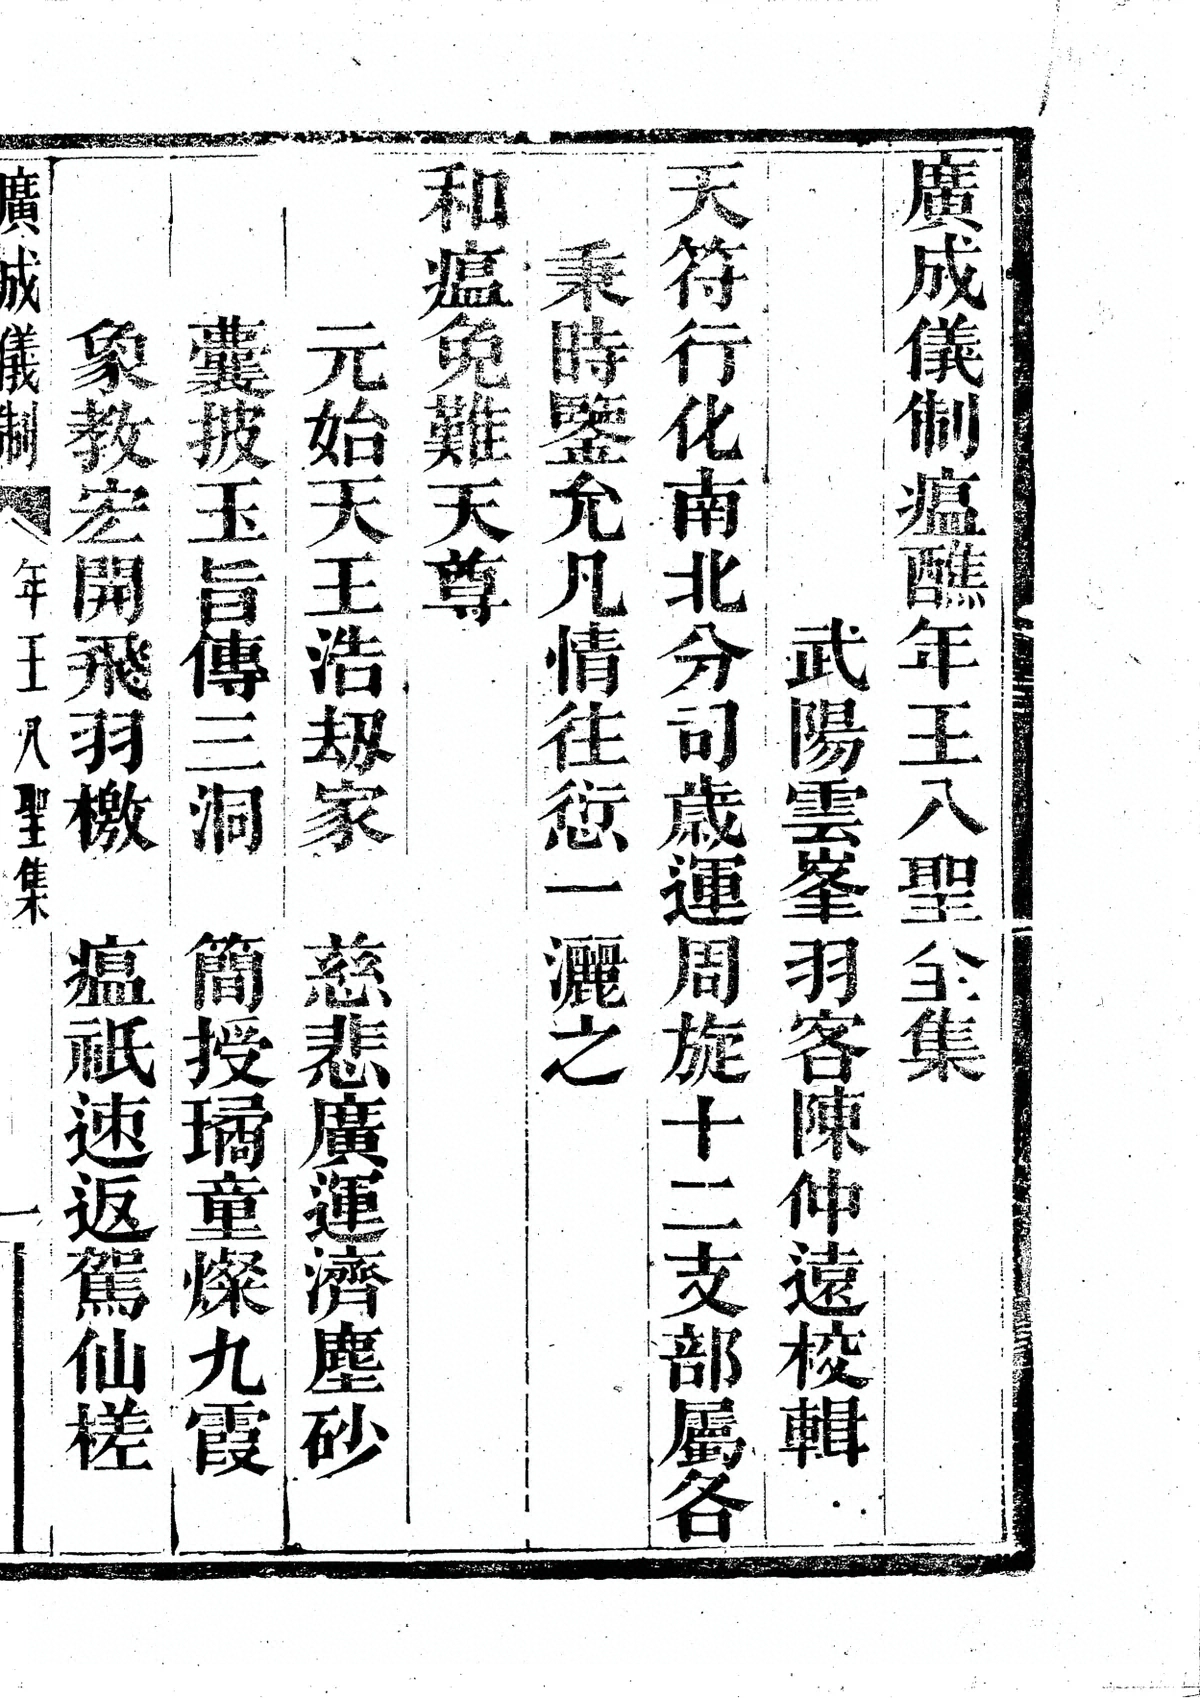 廣成儀制瘟醮年王八聖全集
武陽雲峯羽客陳仲遠校輯
天符行化南北分司歲運周旋十二支部屬各
秉時鑒允凡情往愆一灑之
和瘟免難天尊
元始天王浩劫家　慈悲廣運濟塵砂
囊披玉旨傳三洞　簡授璚童燦九霞
象教宏開飛羽檄　瘟祇速返駕仙槎
廣成儀制　年王八聖集　一